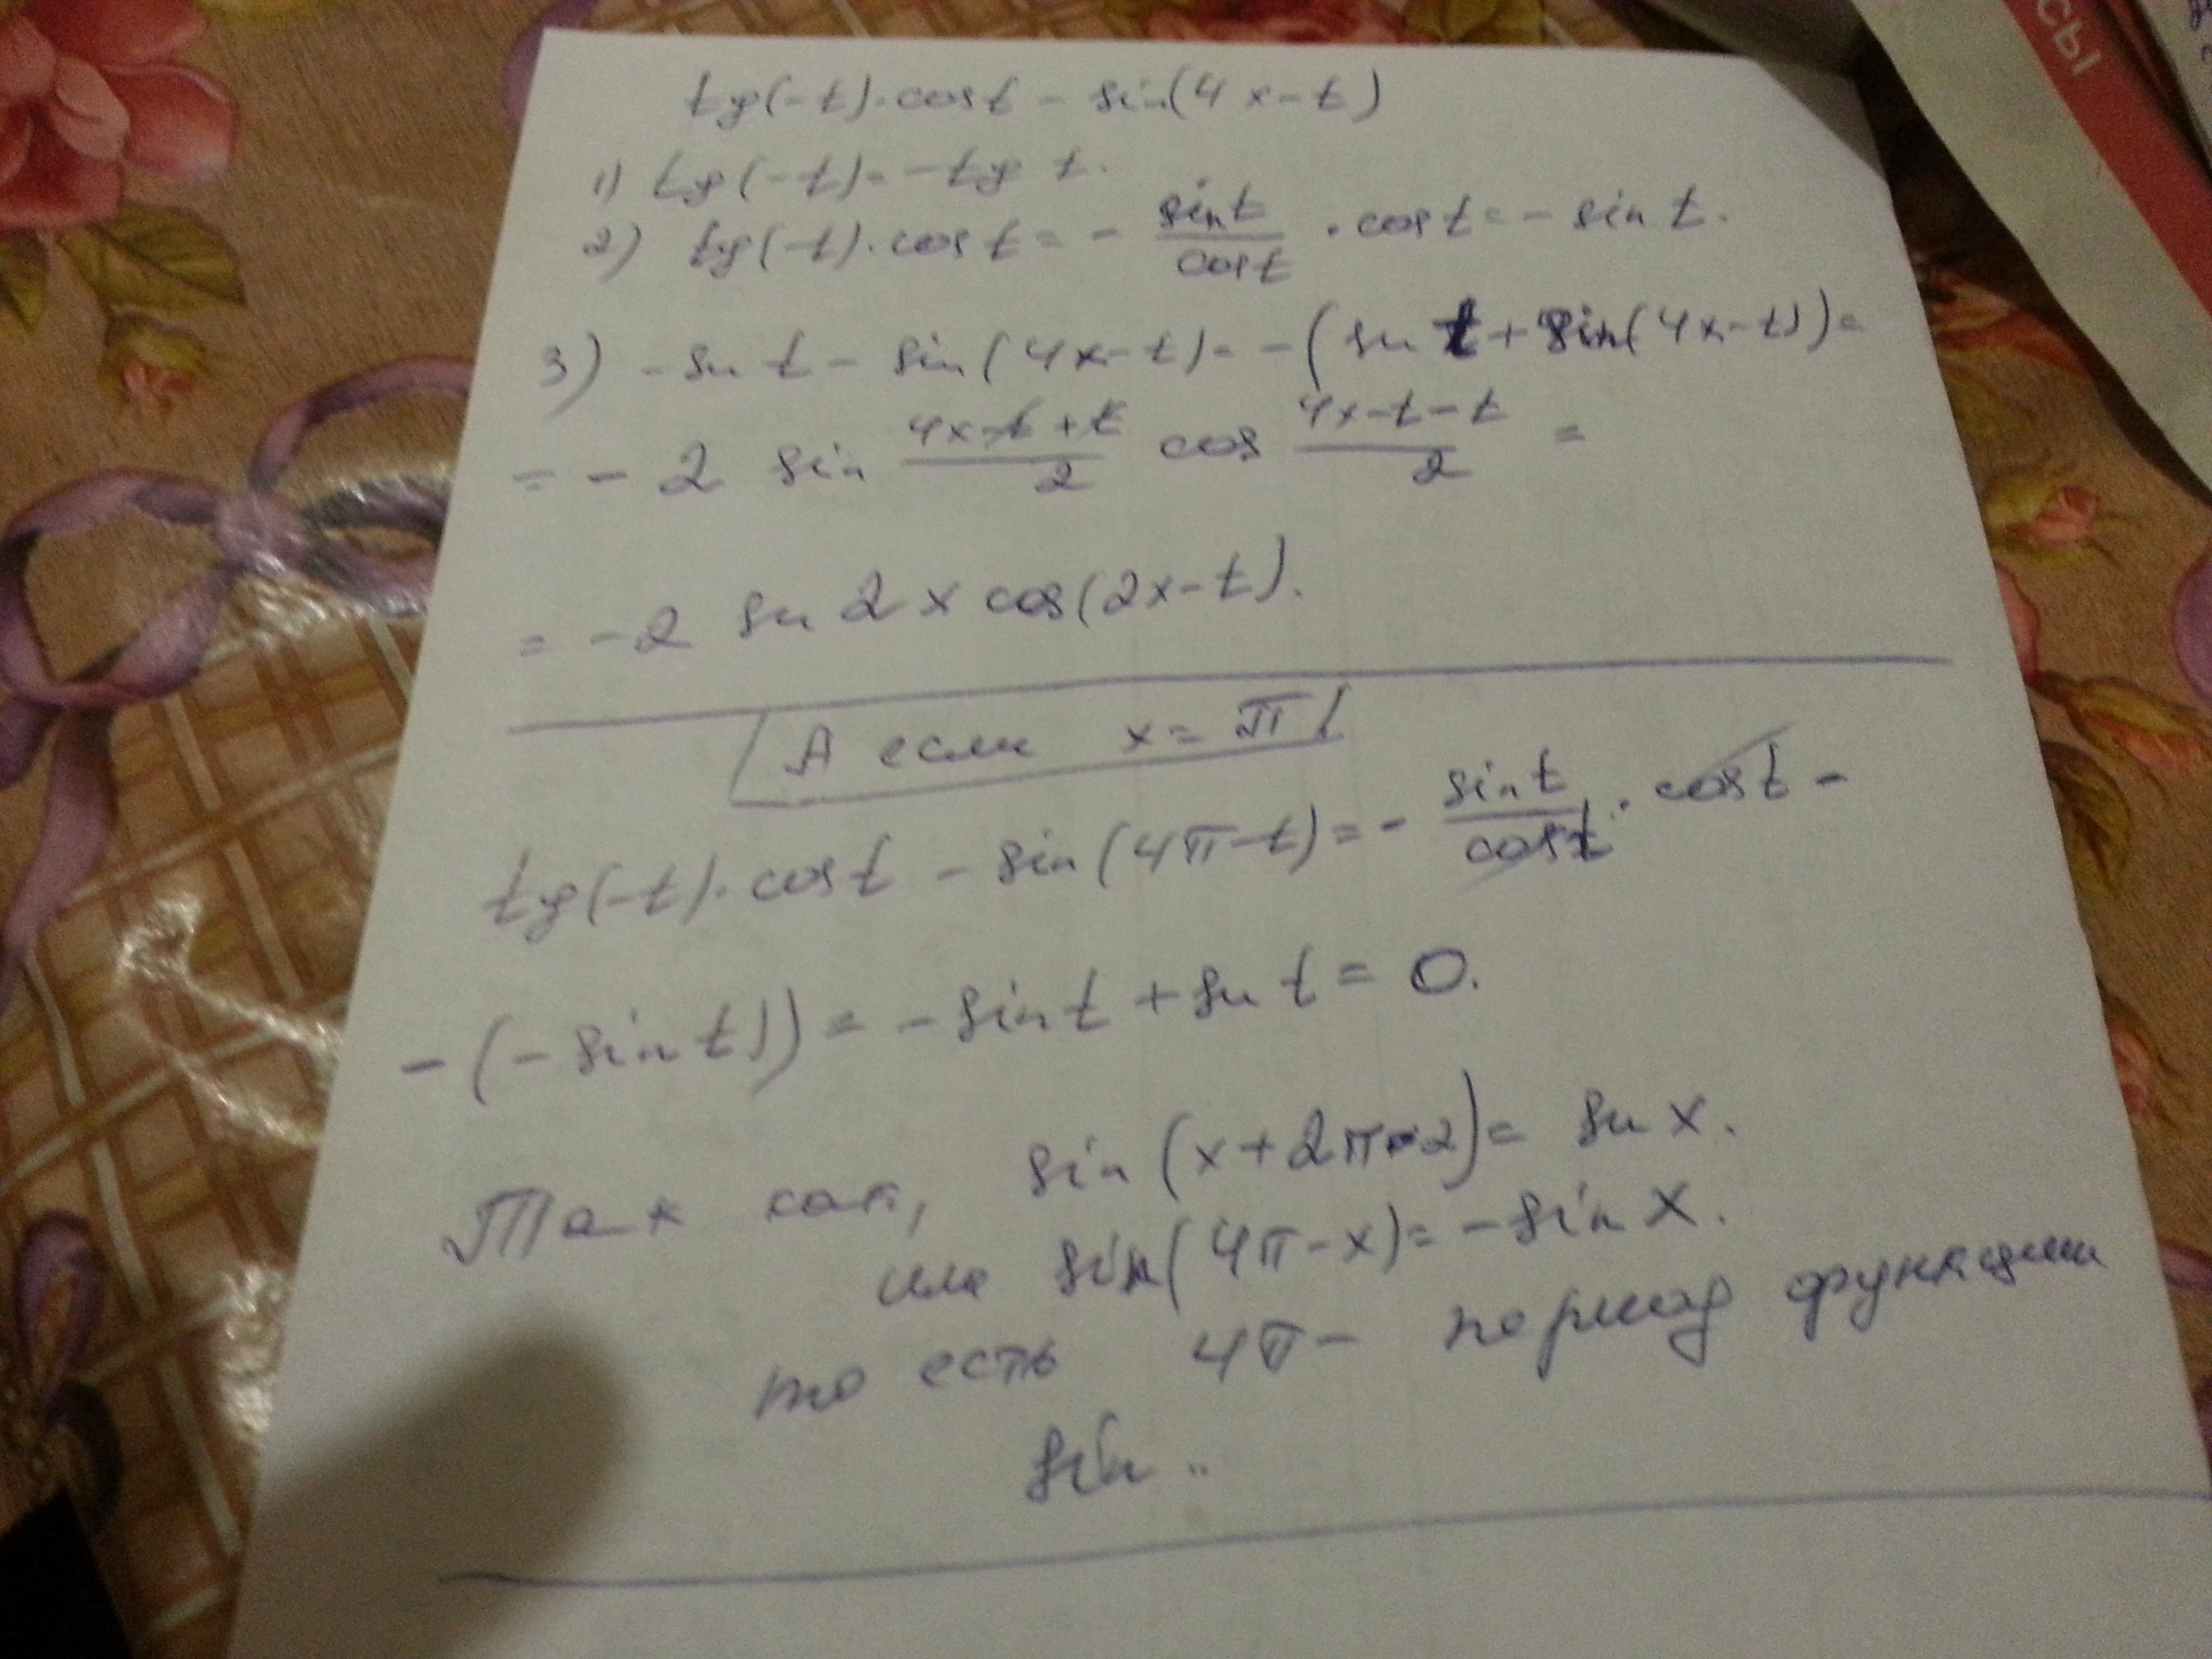 tg(-t)·cost - sin(4x-t)
1) tg(-t)= -tg t.
2) tg(-t)·cos t = - sint/cost · cos t = - sin t.
3) - sin t - sin(4x-t) = -(sin t + sin(4x-t)) =
= - 2 sin (4x-t+t)/2 cos (4x-t-t)/2 =
= -2 sin 2x cos(2x-t).
А если x = π
tg(-t)·cost - sin(4π-t) = - sint/cost · cost -
- (- sin t)) = - sin t + sin t = 0.
Так как, sin(x+2π·2) = sin x.
или sin(4π-x) = - sin x.
то есть 4π - период функции
sin ..
СЫ